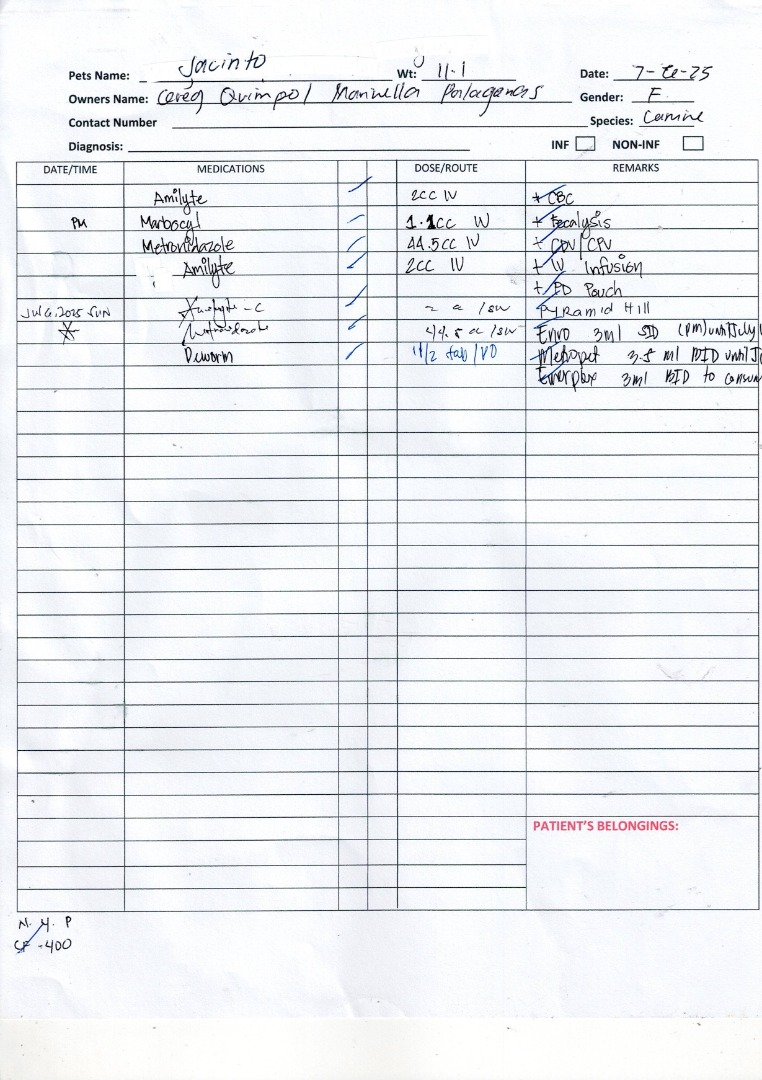 Pets Name: Jacinto Wt: 11.1 Date: 7-
Owners Name: Quimpol Gender: F
Contact Number Species: Canine
Diagnosis: INF NON-INF
DATE/TIME MEDICATIONS DOSE/ROUTE REMARKS
Amilyte 2cc IV + CBC
PM Marbocyl 1.1cc IV + Fecalysis
Metronidazole 44.5cc IV + CDV/CPV
Amilyte 2cc IV + IV Infusion
+ ED Pouch
2025 SUN -C Pyramid Hill
Metronidazole 44.5 Enro 3ml SID (PM) until July
Deworm 1 1/2 tab/ Metropet 3.5 ml BID until
3ml BID to consum
PATIENT'S BELONGINGS:
N. Y. P
CF -400